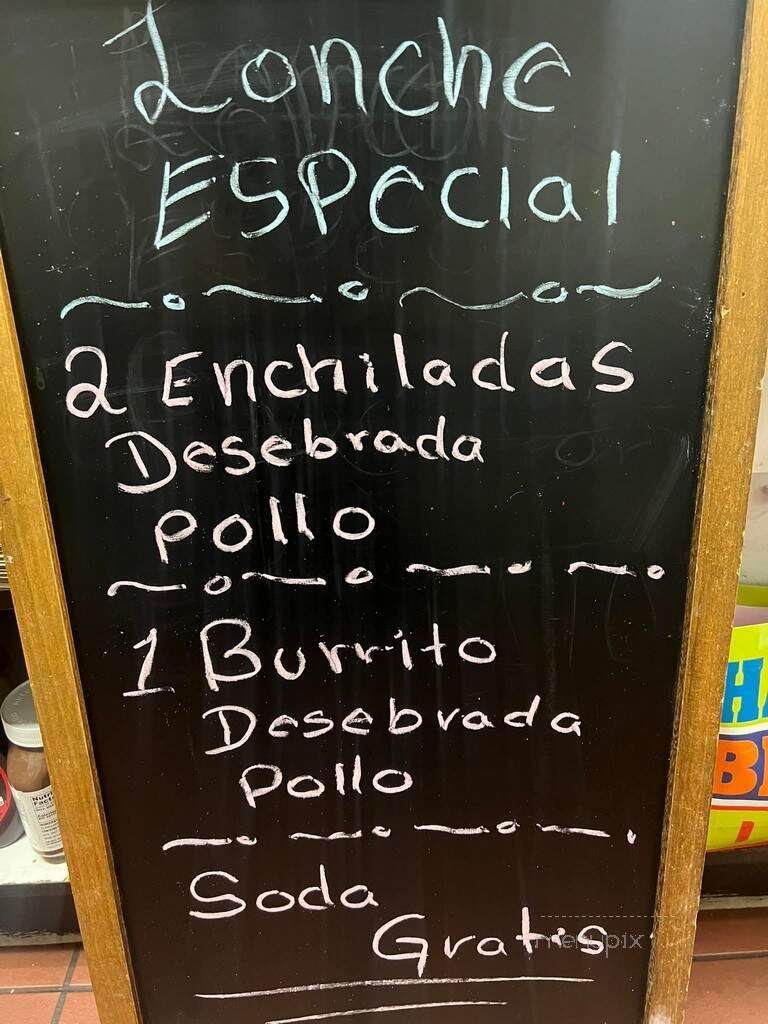 Lonche
Especial
2 Enchiladas
Desebrada
or
Pollo
1 Burrito
Desebrada
Pollo
Soda
Gratis
menupix
Nutri
Facts
HA